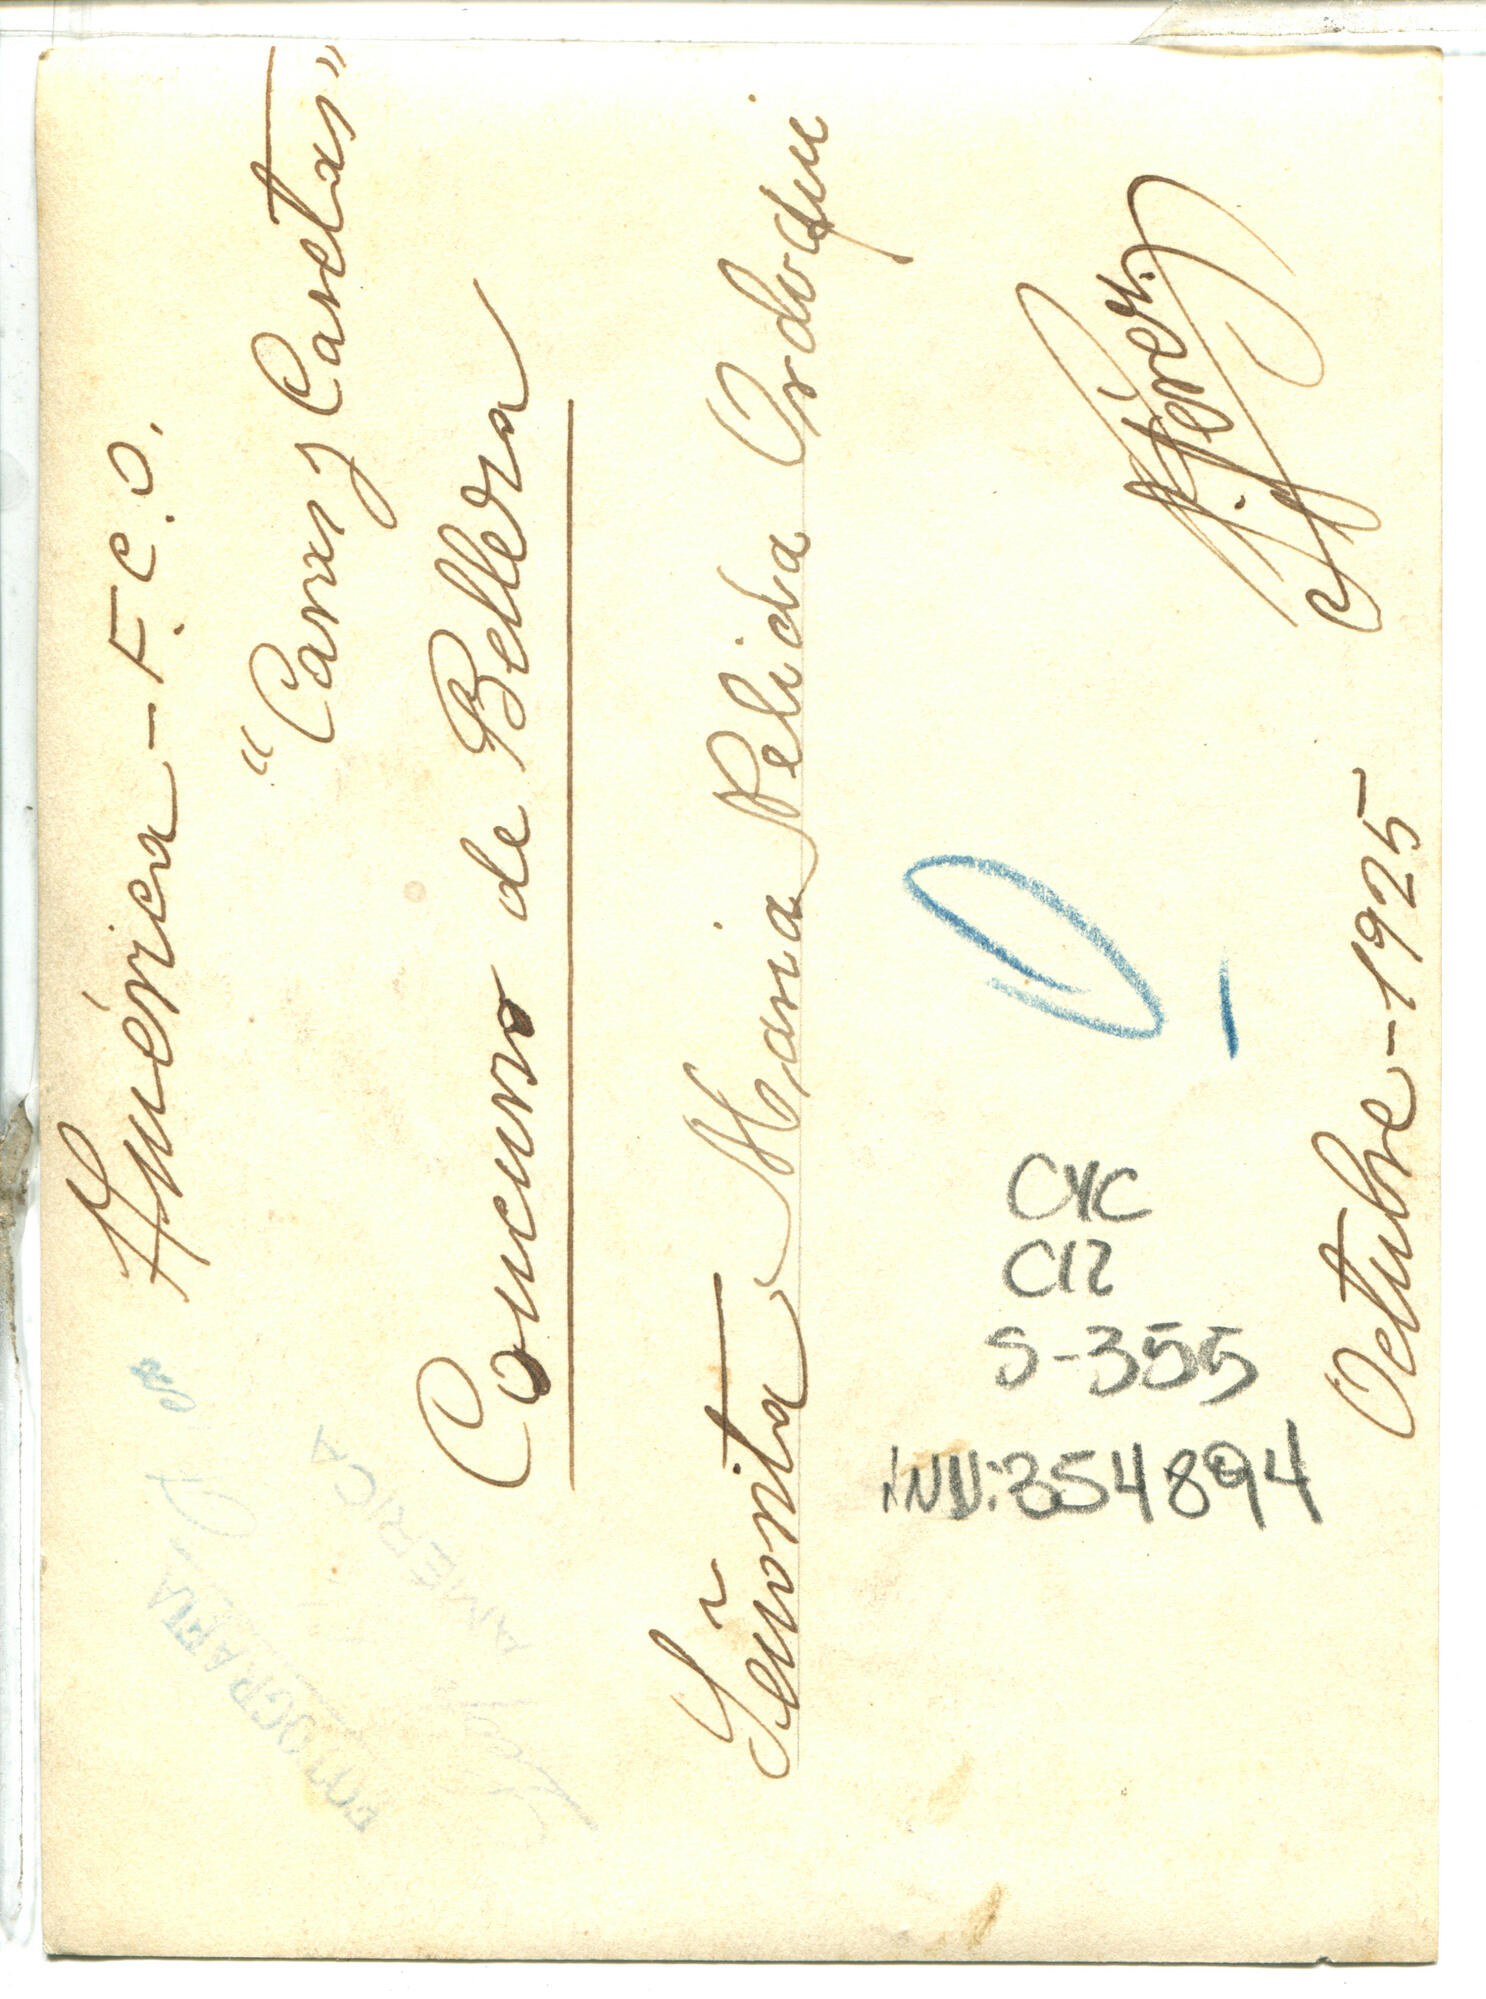 América - F.C.O.
"Caras y Caretas"
Concurso de Belleza
Señorita Maria Nelida Ordoqui
Octubre - 1925
CYC
C12
S-355
iNV:354894
FOTOGRAFIA
AMERICA